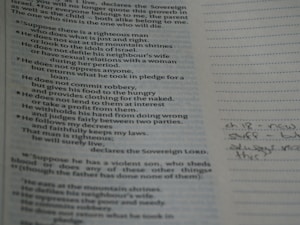 as I live, declares the Sovereign
will no longer quote this proverb in
Israel. For everyone belongs to me, the parent
as well as the child – both alike belong to me.
The one who sins is the one who will die.
Suppose there is a righteous man
who does what is just and right.
He does not eat at the mountain shrines
or look to the idols of Israel.
He does not defile his neighbour's wife
or have sexual relations with a woman
during her period.
He does not oppress anyone,
but returns what he took in pledge for a
loan.
He does not commit robbery,
but gives his food to the hungry
and provides clothing for the naked.
He does not lend to them at interest
or take a profit from them.
He withholds his hand from doing wrong
and judges fairly between two parties.
He follows my decrees
and faithfully keeps my laws.
That man is righteous;
he will surely live,
declares the Sovereign LORD.
Suppose he has a violent son, who sheds
blood or does any of these other things
(though the father has done none of them):
He eats at the mountain shrines.
He defiles his neighbour's wife.
He oppresses the poor and needy.
He commits robbery.
He does not return what he took in
pledge.